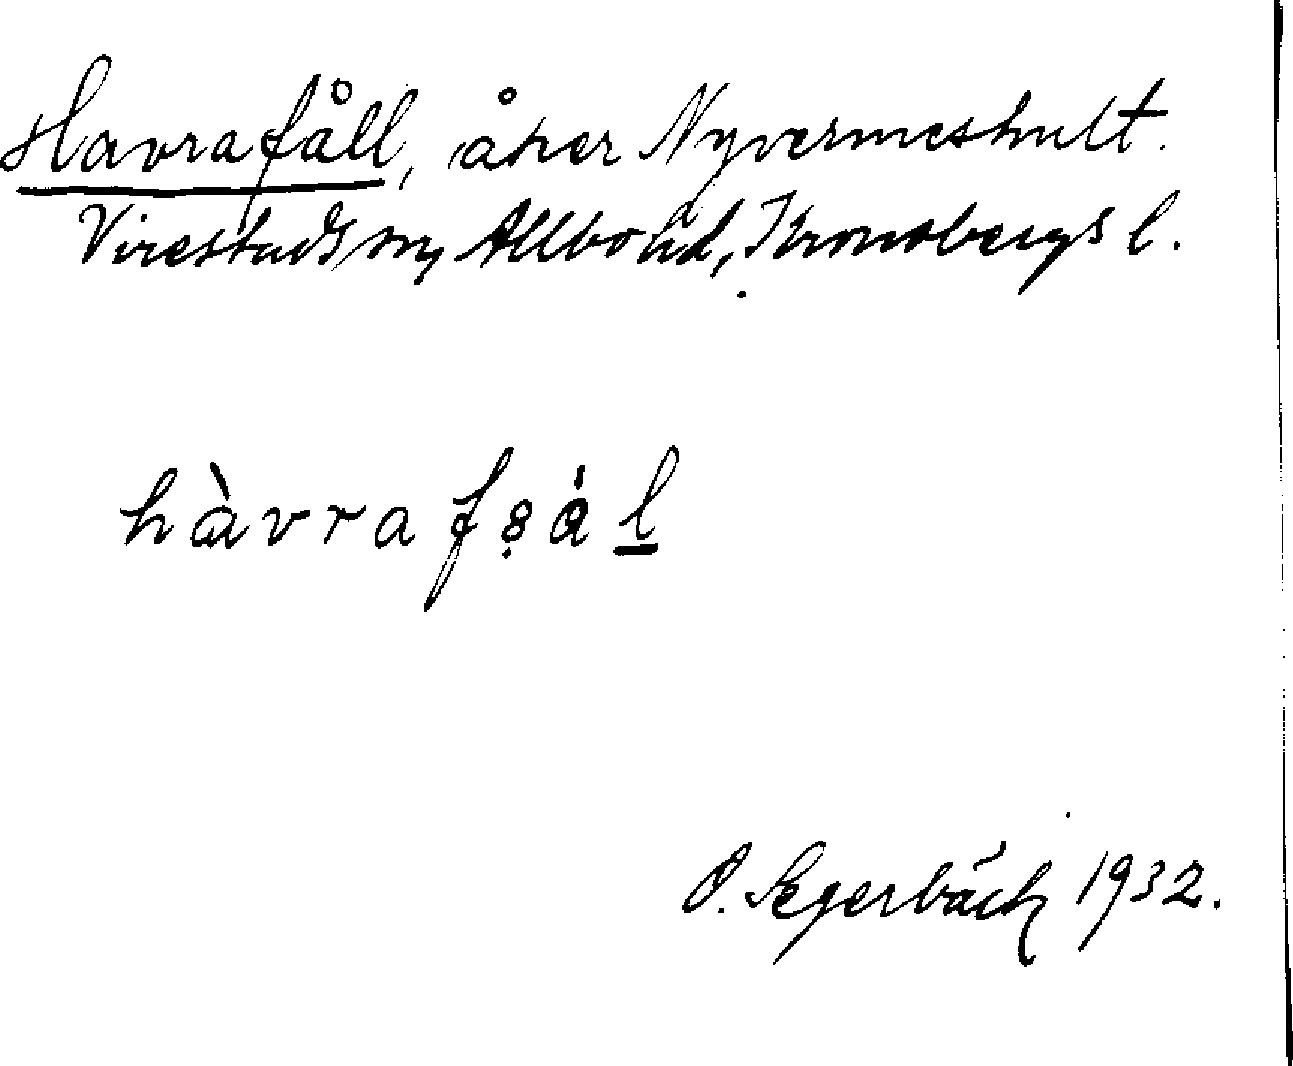 Havrafåll, åker Nyvermeshult.
Virestads sn, Allbo hd, Kronobergs l.
hàvrafṣȧl
O. Segerbäck 1932.